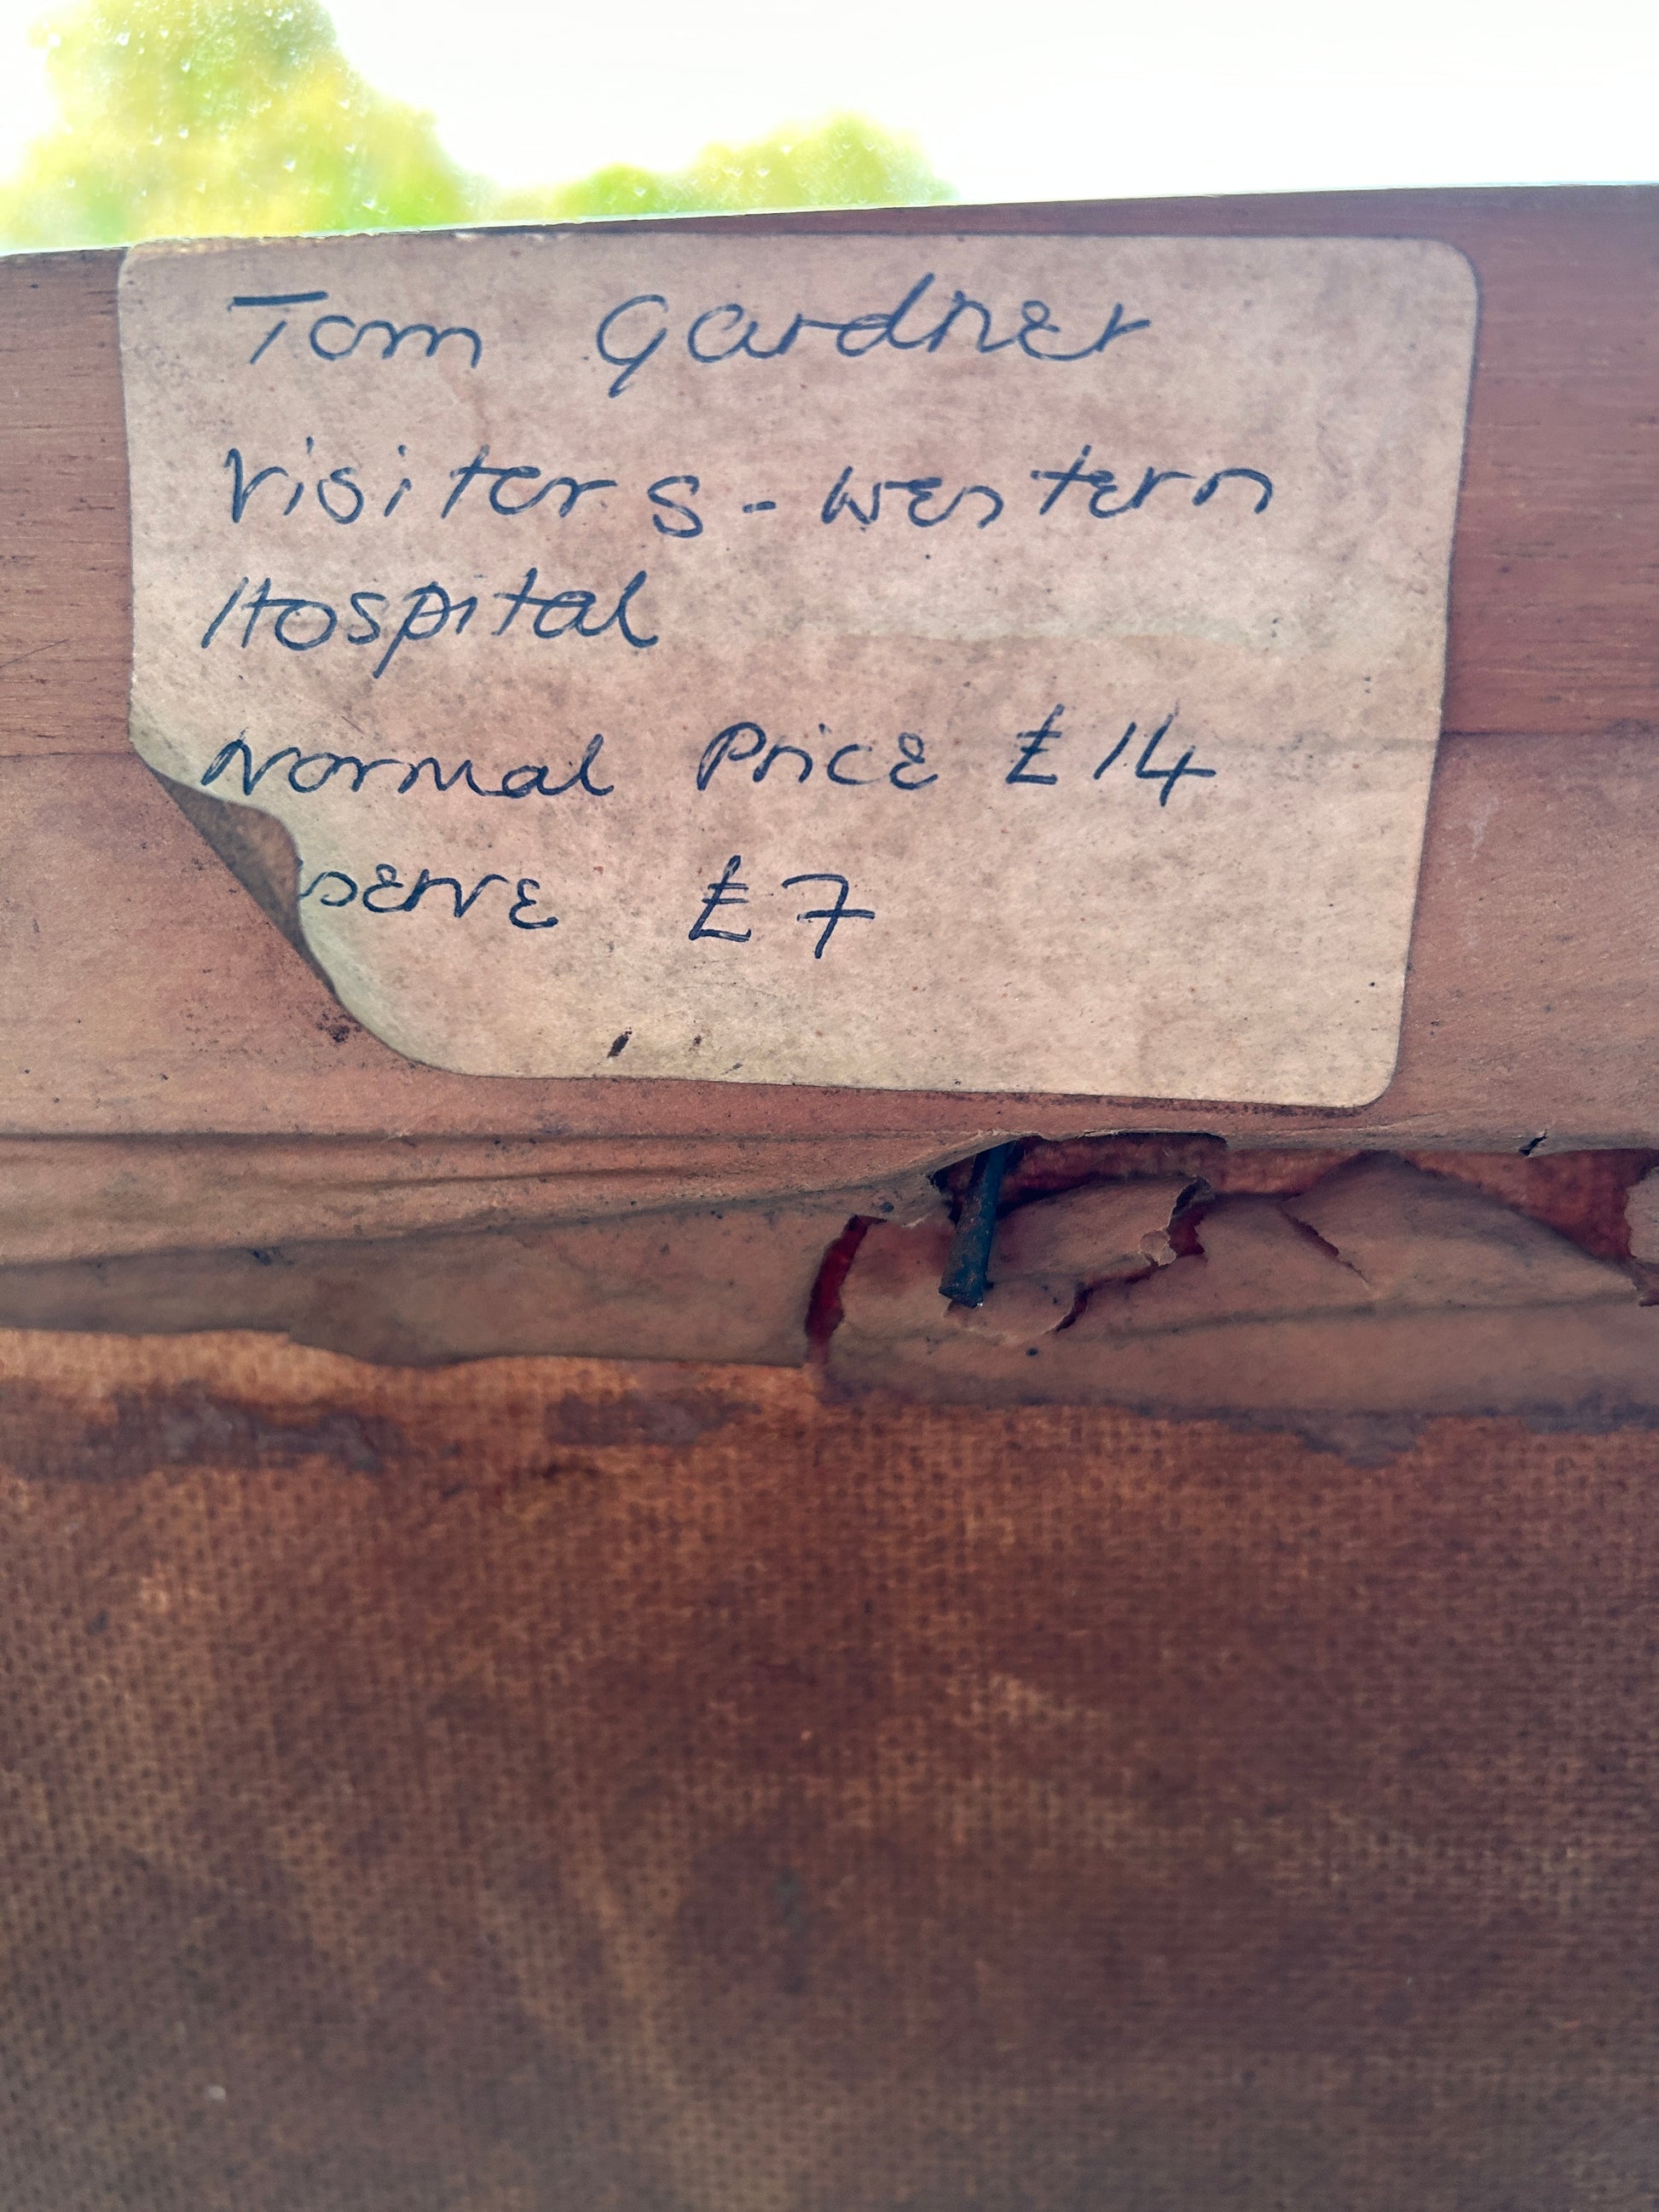 Tom Gardner
Visitors - Western
Hospital
Normal Price £14
serve £7